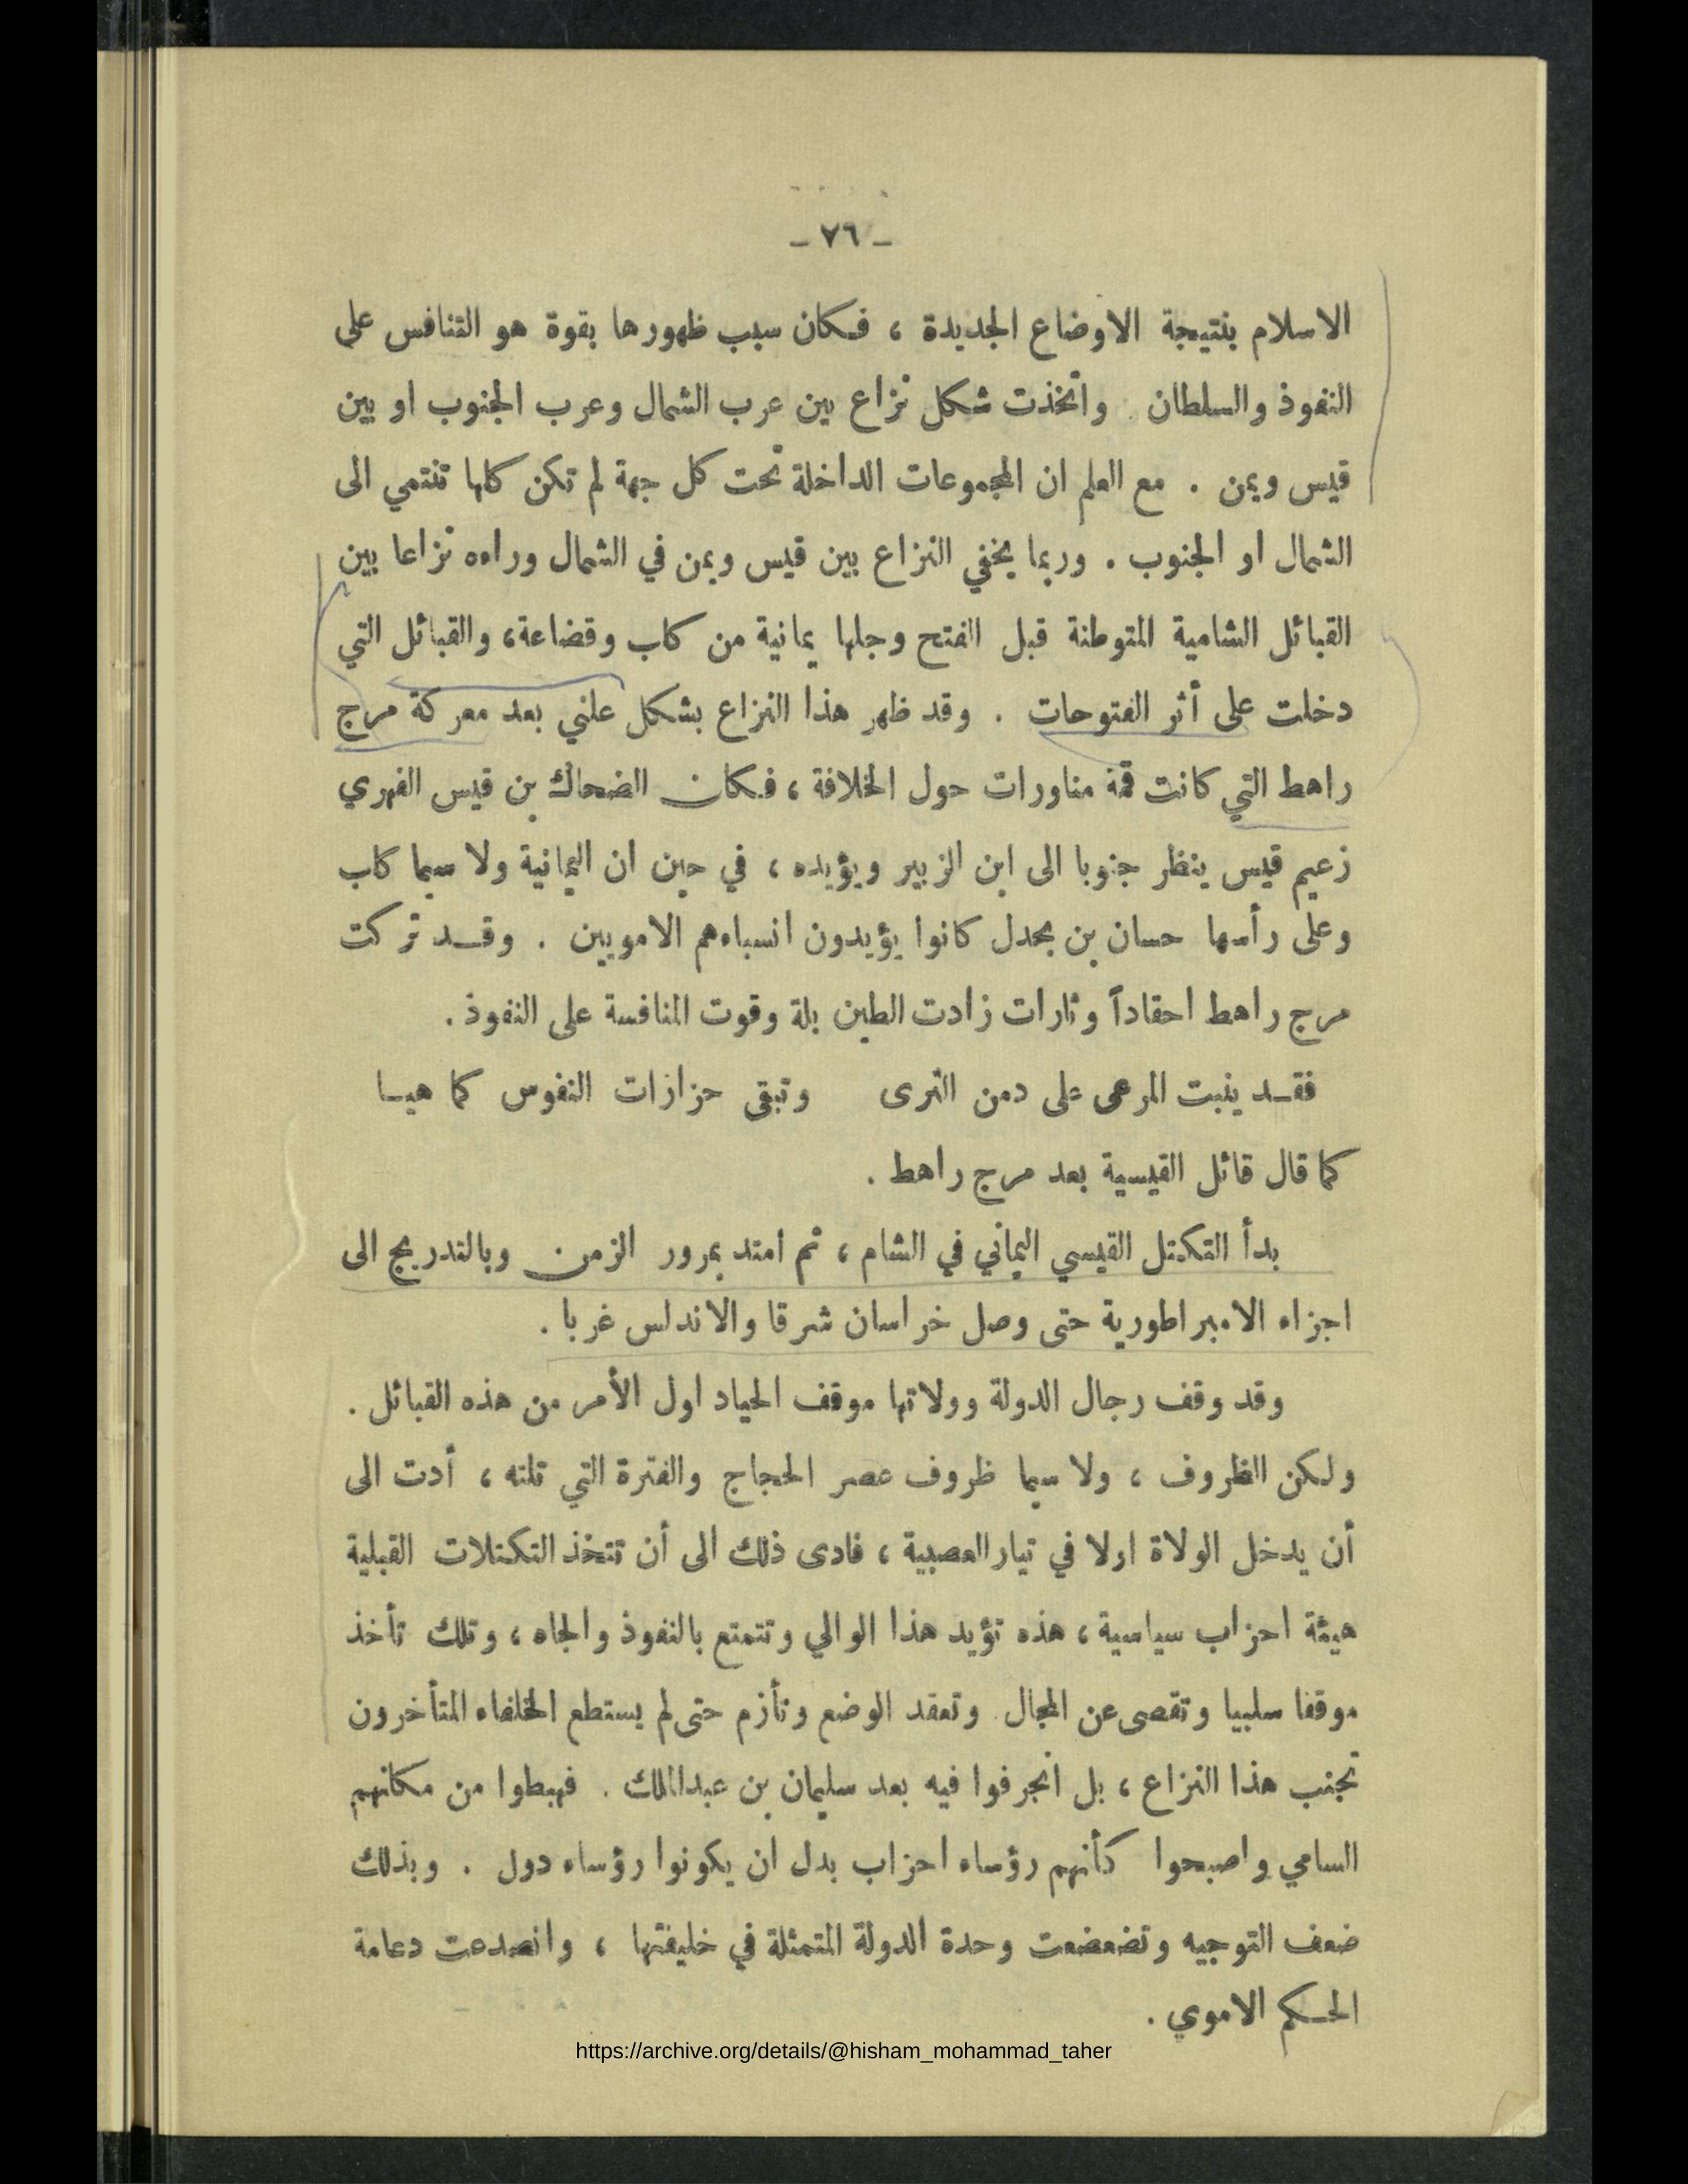 - ٧٦ -
الاسلام بنتيجة الاوضاع الجديدة ، فكان سبب ظهورها بقوة هو التنافس على
النفوذ والسلطان . واتخذت شكل نزاع بين عرب الشمال وعرب الجنوب او بين
قيس ويمن . مع العلم ان المجموعات الداخلة تحت كل جهة لم تكن كلها تنتمي الى
الشمال او الجنوب . وربما يخفي النزاع بين قيس ويمن في الشمال وراءه نزاعا بين
القبائل الشامية المتوطنة قبل الفتح وجلها يمانية من كلب وقضاعة، والقبائل التي
دخلت على أثر الفتوحات . وقد ظهر هذا النزاع بشكل علني بعد معركة مرج
راهط التي كانت قمة مناورات حول الخلافة ، فكان الضحاك بن قيس الفهري
زعيم قيس ينظر جنوبا الى ابن الزبير ويؤيده ، في حين ان اليمانية ولا سيما كلب
وعلى رأسها حسان بن بحدل كانوا يؤيدون انسباءهم الامويين . وقد تركت
مرج راهط احقاداً وثارات زادت الطين بلة وقوت المنافسة على النفوذ .
فقد ينبت المرعى على دمن الثرى وتبقى حزازات النفوس كما هيا
كما قال قائل القيسية بعد مرج راهط .
بدأ التكتل القيسي اليماني في الشام ، ثم امتد بمرور الزمن وبالتدريج الى
اجزاء الامبراطورية حتى وصل خراسان شرقا والاندلس غربا .
وقد وقف رجال الدولة وولاتها موقف الحياد اول الأمر من هذه القبائل .
ولكن الظروف ، ولا سيما ظروف عصر الحجاج والفترة التي تلته ، أدت الى
أن يدخل الولاة اولا في تيار العصبية ، فادى ذلك الى أن تتخذ التكتلات القبلية
هيئة احزاب سياسية ، هذه تؤيد هذا الوالي وتتمتع بالنفوذ والجاه ، وتلك تأخذ
موقفا سلبيا وتقصى عن المجال . وتعقد الوضع وتأزم حتى لم يستطع الخلفاء المتأخرون
تجنب هذا النزاع ، بل انجرفوا فيه بعد سليمان بن عبدالملك . فهبطوا من مكانهم
السامي واصبحوا كأنهم رؤساء احزاب بدل ان يكونوا رؤساء دول . وبذلك
ضعف التوجيه وتضعضعت وحدة الدولة المتمثلة في خليفتها ، وانصدعت دعامة
الحكم الاموي .
https://archive.org/details/@hisham_mohammad_taher